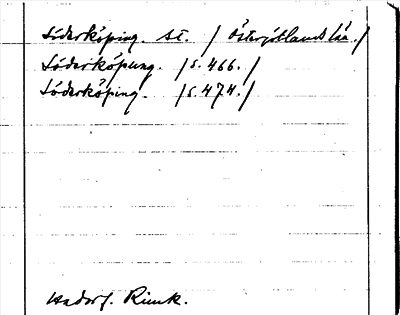 Söderköping. st. / Östergötlands län./
Söderköpung. /s. 466./
Söderköping. /s. 474./
Hadorf. Rimk.